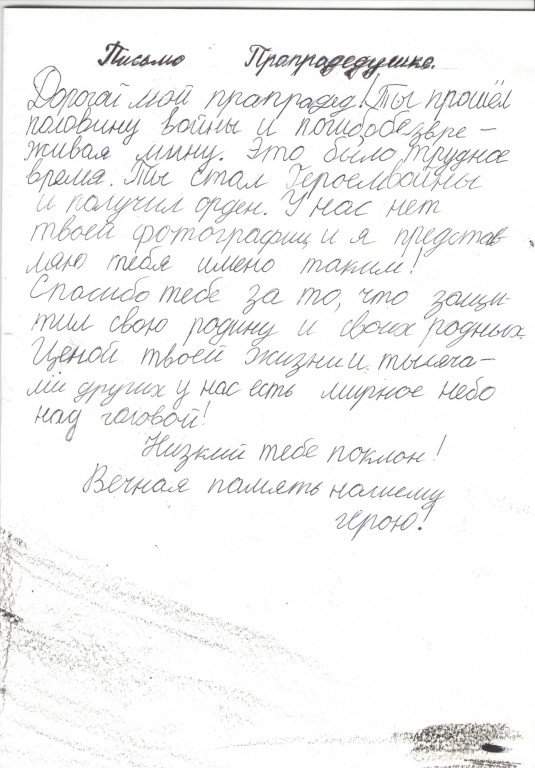 Письмо Прапрадедушке.
Дорогой мой прапрадед! Ты прошёл
половину войны и погиб обезвре-
живая мину. Это было трудное
время. Ты стал Героем войны
и получил орден. У нас нет
твоей фотографии и я представ
ляю тебя имено таким!
Спасибо тебе за то, что защи-
тил свою родину и своих родных.
Ценой твоей жизни и тысяча-
ми других у нас есть мирное небо
над головой!
Низкий тебе поклон!
Вечная память нашему
герою!